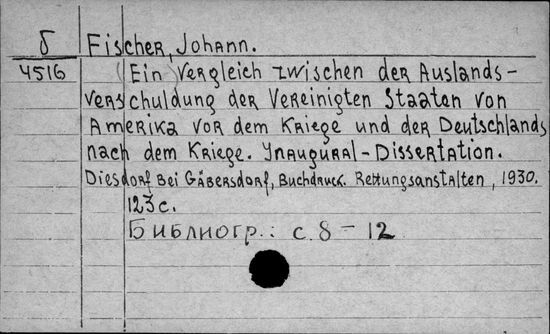 δ Fischer, Johann.
4516 (Ein) Vergleich zwischen der Auslands-
verschuldung der Vereinigten Staaten von
Amerika vor dem Kriege und der Deutschlands
nach dem Kriege. Inaugural-Dissertation.
Diesdorf bei Gäbersdorf, Buchdruck. Rettungsanstalten, 1930.
123 с.
Библиогр.: с. 8-12